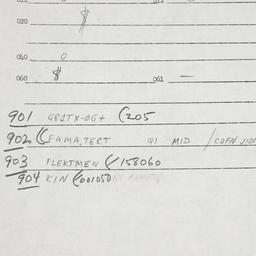 020 $
050 0
060 $ 061 —
901 GPSTX-OG+ (205
902 (FAMA, TERT Q1 MID / COFN
903 FLEKTMEN (/158060
904 KIN (001050